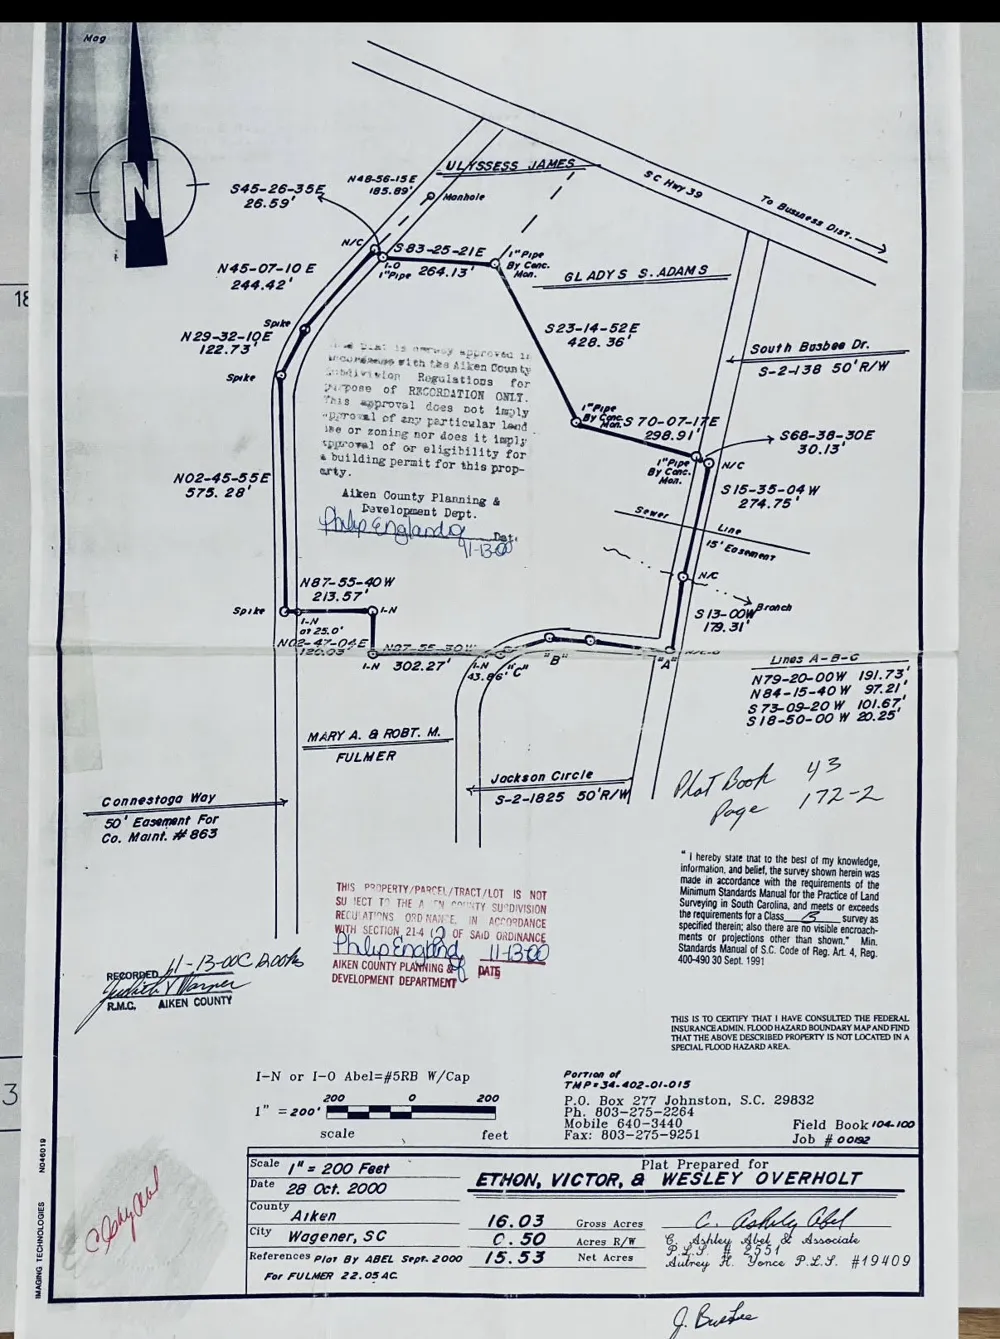 Mag
N
ULYSSESS JAMES
N48-56-15E
185.89'
Manhole
S45-26-35E
26.59'
SC Hwy 39
To Business Dist.
N/C
S83-25-21E
264.13'
I-O
1"Pipe
1"Pipe
By Conc.
Mon.
GLADYS S. ADAMS
N45-07-10E
244.42'
Spike
N29-32-10E
122.73'
Spike
S23-14-52E
428.36'
South Busbee Dr.
S-2-138 50'R/W
is approved in
with the Aiken County
Subdivision Regulations for
purpose of RECORDATION ONLY.
This approval does not imply
approval of any particular land
use or zoning nor does it imply
approval of or eligibility for
a building permit for this prop-
erty.
Aiken County Planning &
Development Dept.
Philip England
Dat.
11-13-00
1"Pipe
By Conc.
Mon.
S70-07-17E
298.91'
S68-38-30E
30.13'
1"Pipe
By Conc.
Mon.
N/C
S15-35-04W
274.75'
N02-45-55E
575.28'
Sewer Line
15' Easement
N/C
Branch
S13-00W
179.31'
N87-55-40W
213.57'
Spike
I-N
I-N
at 25.0'
N02-47-04E
120.03'
N87-55-30W
I-N
302.27'
I-N
43.86'
"C"
"B"
"A"
Lines A-B-C
N79-20-00W 191.73'
N84-15-40W 97.21'
S73-09-20W 101.67'
S18-50-00W 20.25'
MARY A. & ROBT. M.
FULMER
Jackson Circle
S-2-1825 50'R/W
Connestoga Way
50' Easement For
Co. Maint. #863
Plat Book 43
Page 172-2
"I hereby state that to the best of my knowledge,
information, and belief, the survey shown herein was
made in accordance with the requirements of the
Minimum Standards Manual for the Practice of Land
Surveying in South Carolina, and meets or exceeds
the requirements for a Class B survey as
specified therein; also there are no visible encroach-
ments or projections other than shown." Min.
Standards Manual of S.C. Code of Reg. Art. 4, Reg.
400-490 30 Sept. 1991
THIS PROPERTY/PARCEL/TRACT/LOT IS NOT
SUBJECT TO THE AIKEN COUNTY SUBDIVISION
REGULATIONS ORDINANCE, IN ACCORDANCE
WITH SECTION 21-4 (2) OF SAID ORDINANCE
Philip England 11-13-00
AIKEN COUNTY PLANNING & DATE
DEVELOPMENT DEPARTMENT
RECORDED 11-13-00
R.M.C. AIKEN COUNTY
THIS IS TO CERTIFY THAT I HAVE CONSULTED THE FEDERAL
INSURANCE ADMIN. FLOOD HAZARD BOUNDARY MAP AND FIND
THAT THE ABOVE DESCRIBED PROPERTY IS NOT LOCATED IN A
SPECIAL FLOOD HAZARD AREA.
I-N or I-O Abel=#5RB W/Cap
1" = 200'
200 0 200
scale feet
Portion of
TMP#34-402-01-015
P.O. Box 277 Johnston, S.C. 29832
Ph. 803-275-2264
Mobile 640-3440
Fax: 803-275-9251
Field Book 104-100
Job # 00192
Scale 1" = 200 Feet
Date 28 Oct. 2000
County Aiken
City Wagener, SC
References Plat By ABEL Sept. 2000
For FULMER 22.05 AC.
Plat Prepared for
ETHON, VICTOR, & WESLEY OVERHOLT
16.03 Gross Acres
0.50 Acres R/W
15.53 Net Acres
C. Ashley Abel
C. Ashley Abel & Associate
P.L.S. # 2551
Autrey H. Yonce P.L.S. #19409
C Ashley Abel
IMAGING TECHNOLOGIES N046019
18
3